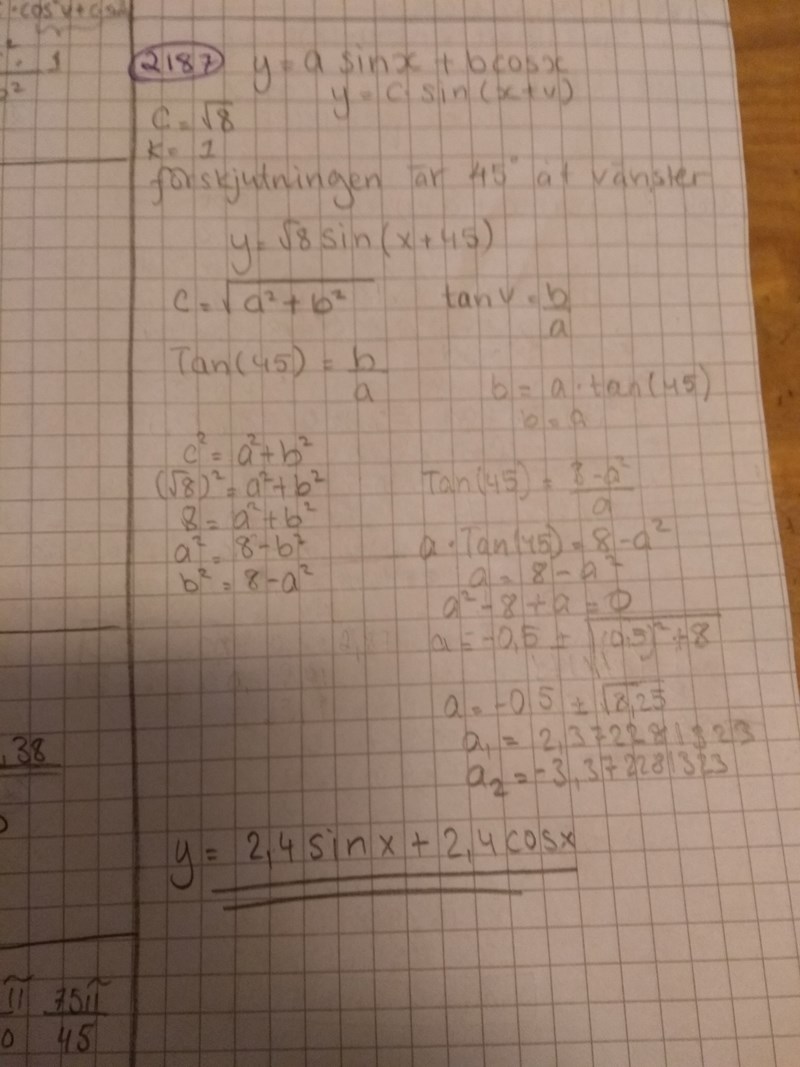 2187 y = a sinx + bcosx
y = c sin(x+v)
C = √8
K = 1
förskjutningen är 45° åt vänster
y = √8 sin(x+45)
C = √(a² + b²) tan v = b/a
Tan(45) = b/a
b = a · tan(45)
b = a
c² = a² + b²
(√8)² = a² + b²
8 = a² + b²
a² = 8 - b²
b² = 8 - a²
Tan(45) = (8 - a²)/a
a · Tan(45) = 8 - a²
a = 8 - a²
a² - 8 + a = 0
a = -0,5 ± √((0,5)² + 8)
a = -0,5 ± √8,25
a₁ = 2,372281323
a₂ = -3,372281323
y = 2,4 sinx + 2,4 cosx
,38
π 75π
0 45